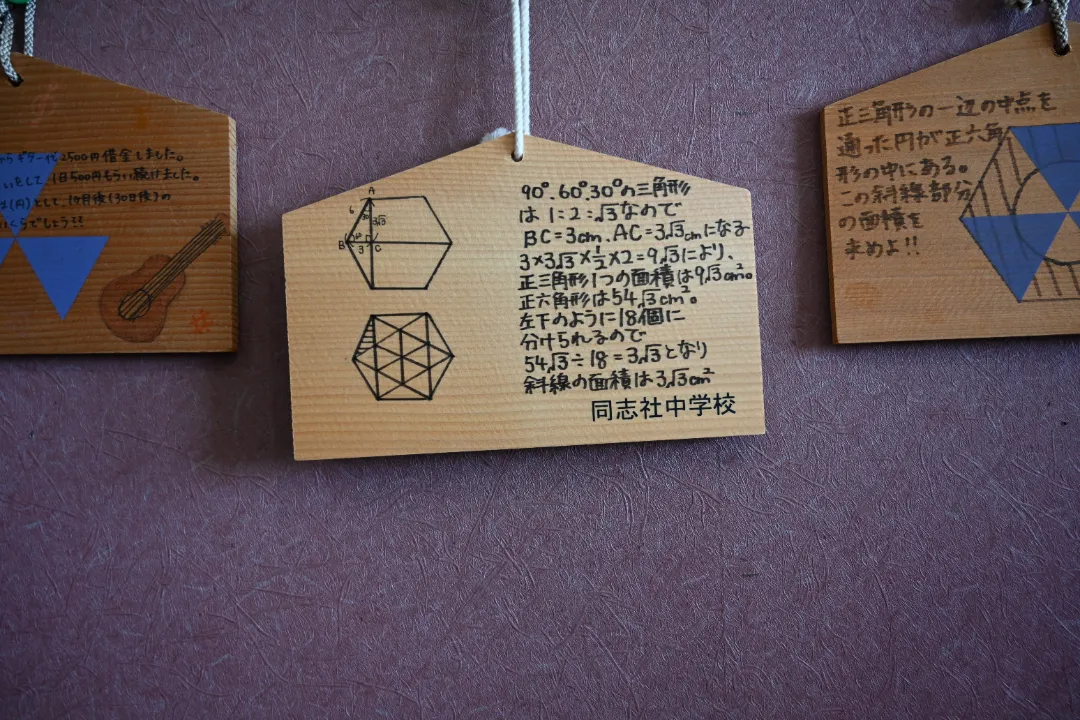 2500円借金しました。
をして、1日500円もらい続けました。
(円)として、1ヶ月後(30日後)の
でしょう??
A
6
30°
3√3
B
60°
3
C
90°.60°.30°の三角形
は1:2:√3なので
BC=3cm.AC=3√3cmになる
3×3√3×½×2=9√3により、
正三角形1つの面積は9√3cm²。
正六角形は54√3cm²。
左下のように18個に
分けられるので
54√3÷18=3√3となり
斜線の面積は3√3cm²
同志社中学校
正三角形の一辺の中点を
通った円が正六角
形の中にある。
この斜線部分
の面積を
求めよ!!